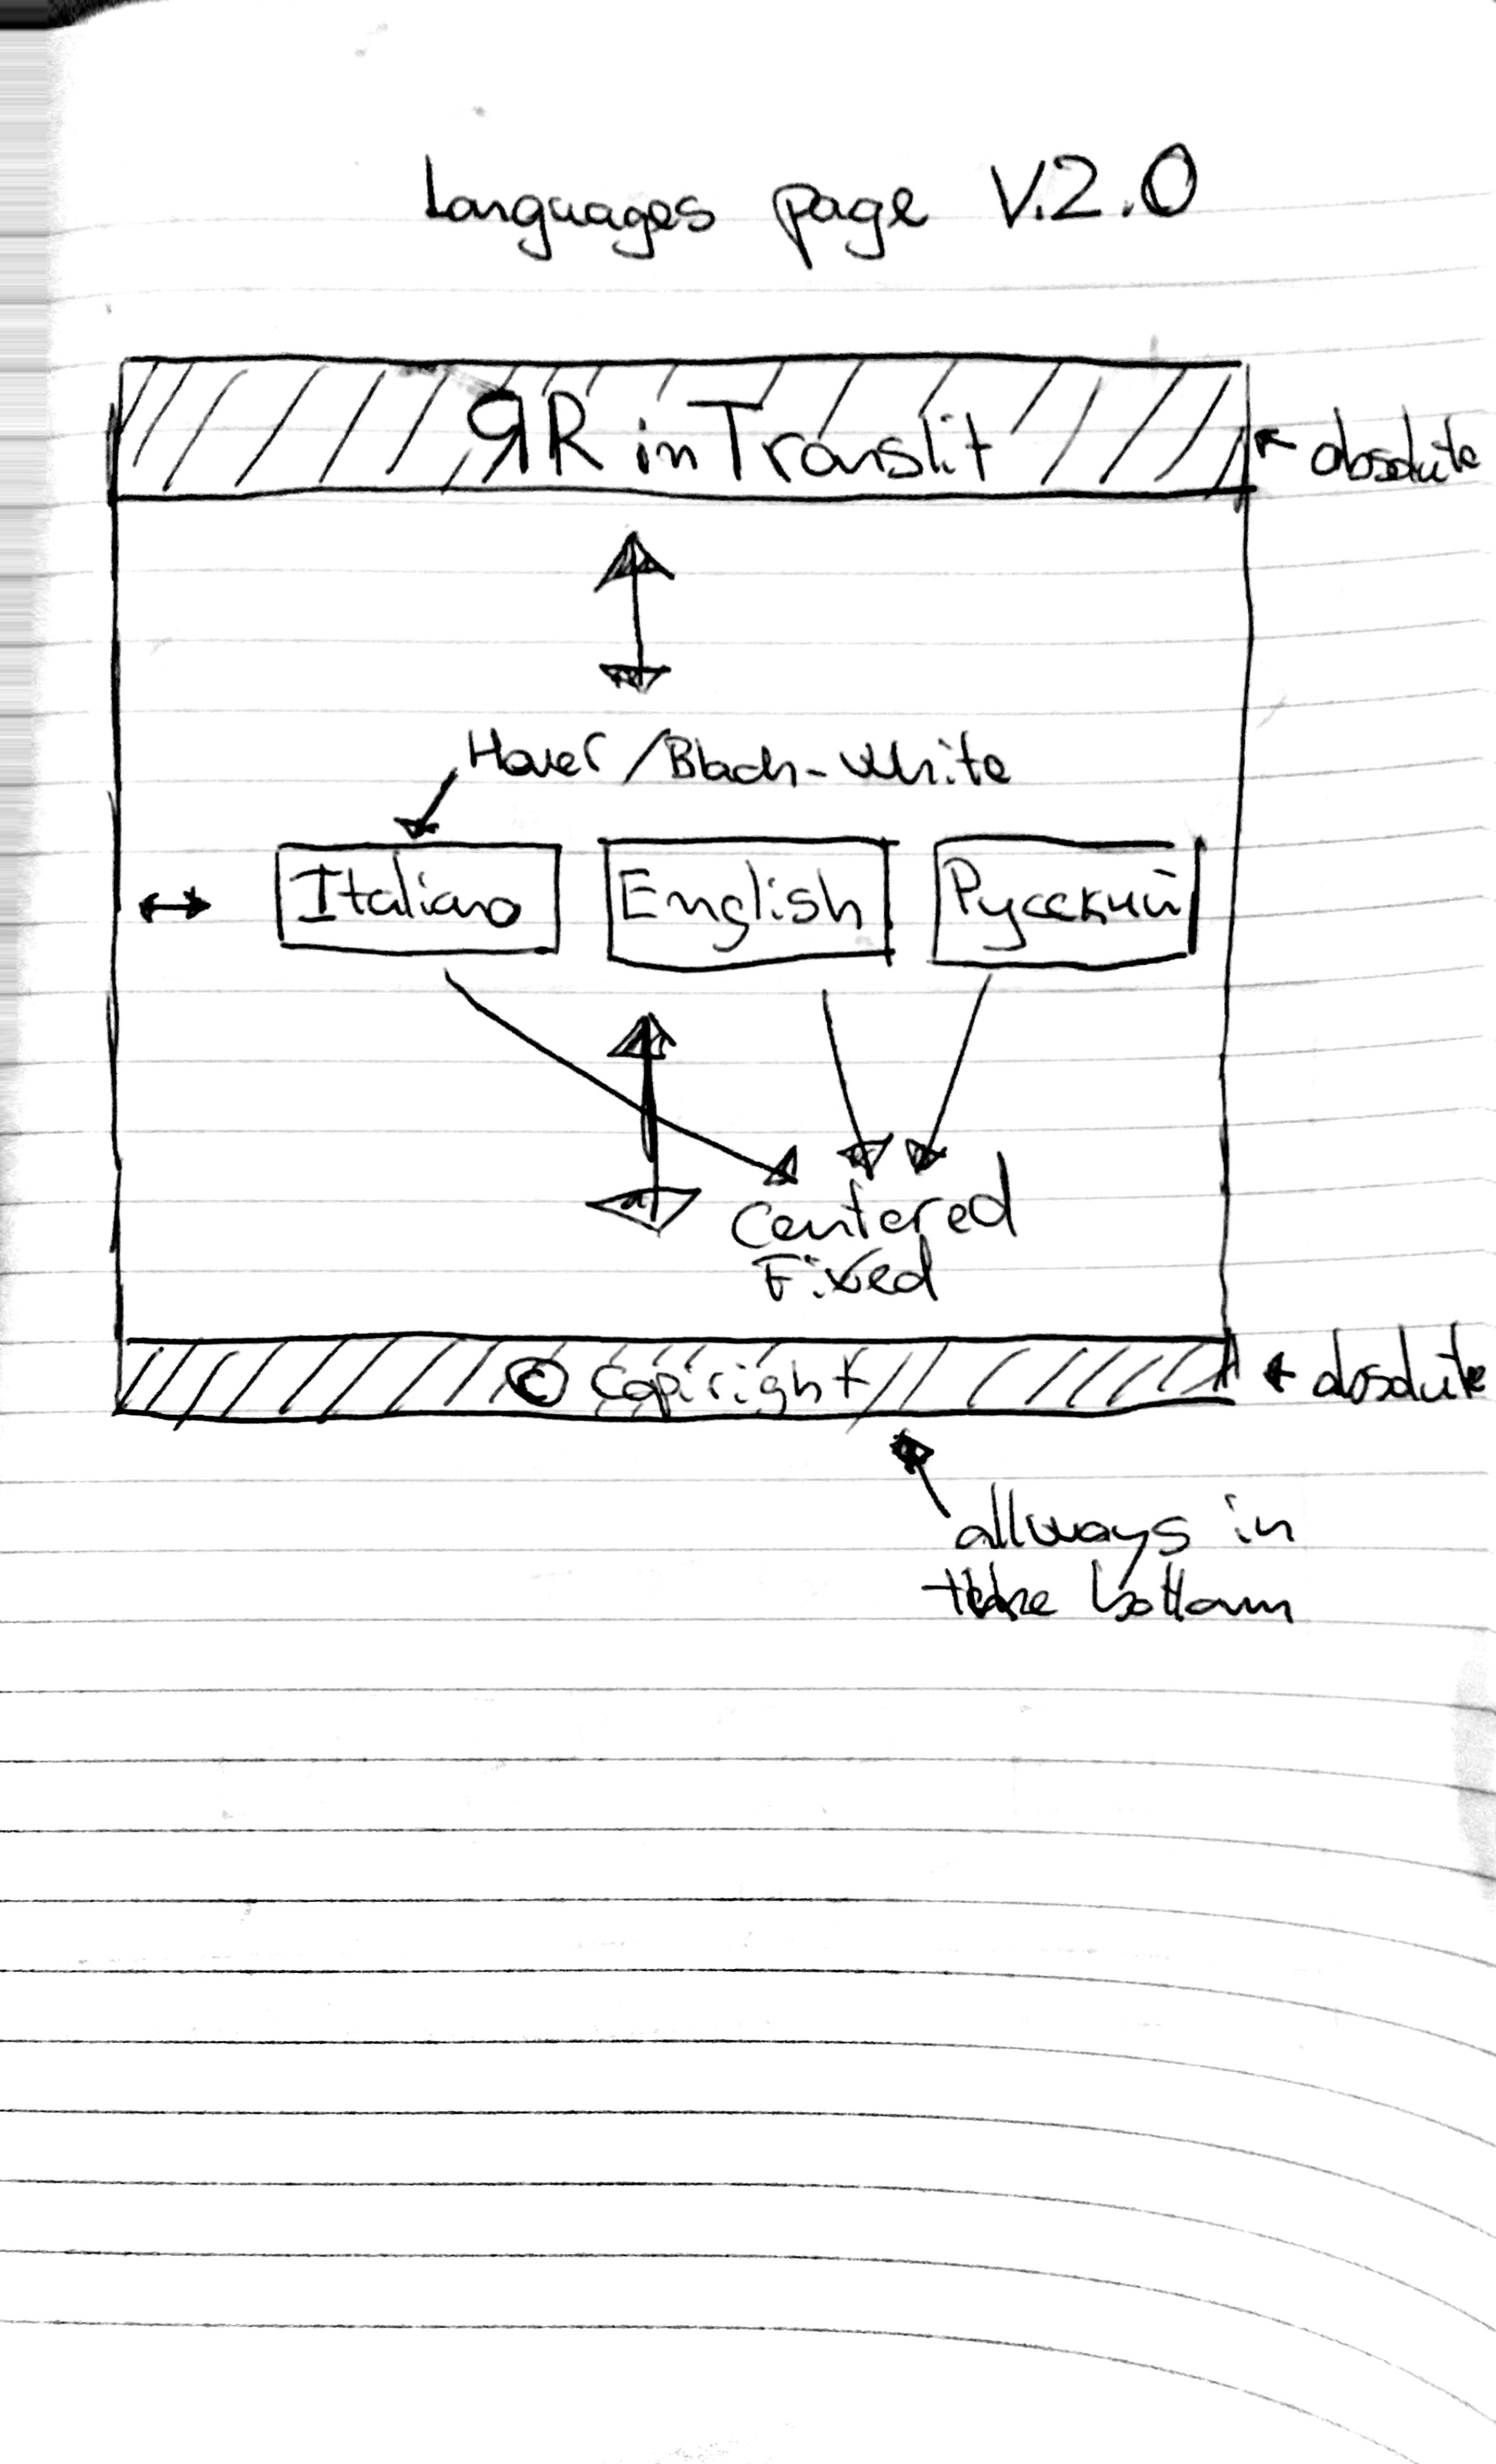 Languages page V.2.0
ЯR in Translit
absolute
Hover / Black-White
Italiano
English
Русский
Centered
Fixed
© Copiright
absolute
allways in
the bottom